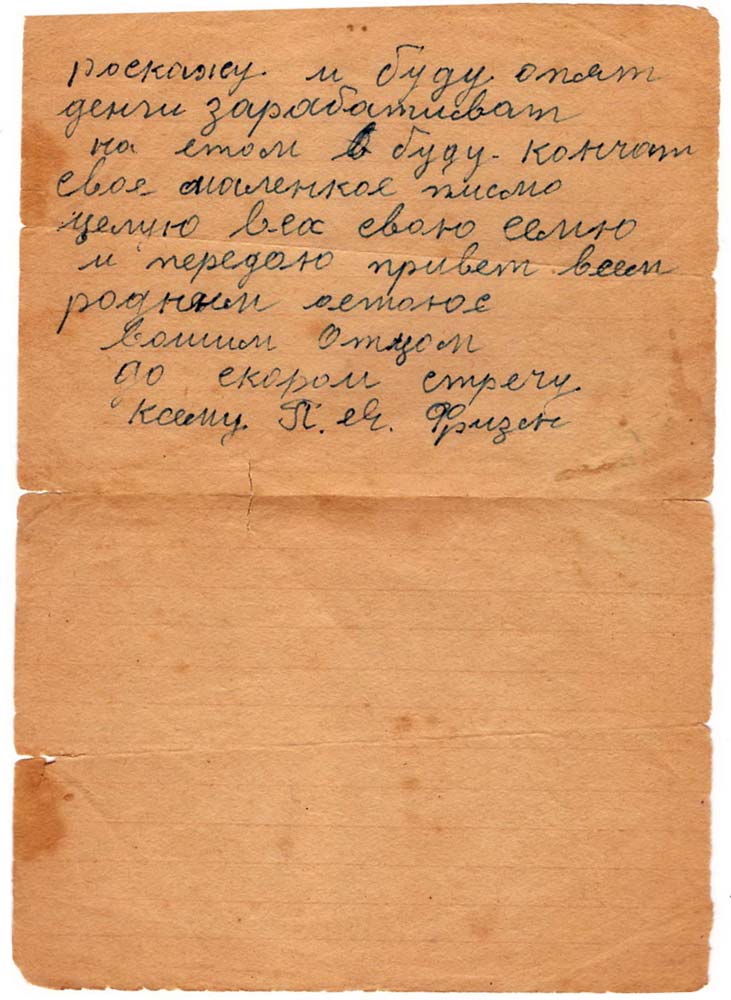 роскажу и буду опят
денги зарабативат
на етом буду. кончат
свое маленкое писмо
целую всех свою семю
и передаю привет всем
родным астаюс
вашим Отцом
до скором стречу.
ксему. П. Я. Фризен